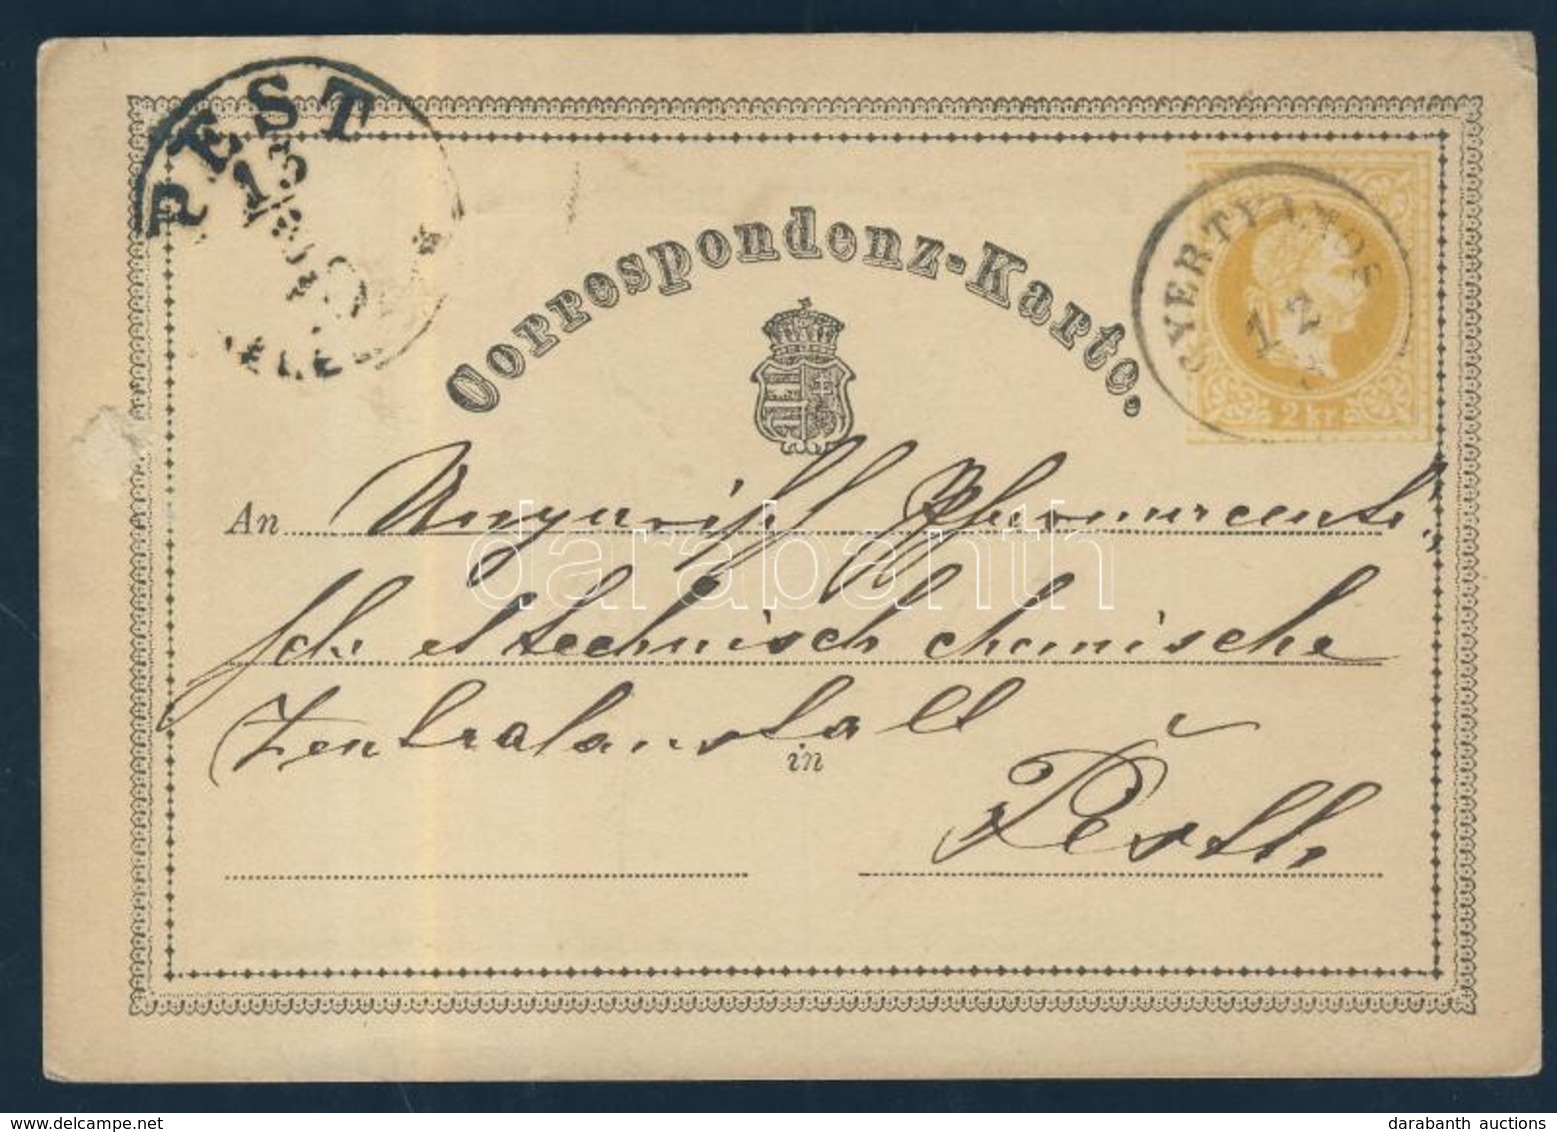 PEST
13
Correspondenz-Karte.
GYERTYÁMOS
12
2 kr.
An Ungarisch Pharmaceuti
sch et technisch chemische
Zentralanstalt
in Pesth
darabanth
www.delcampe.net
darabanth auctions